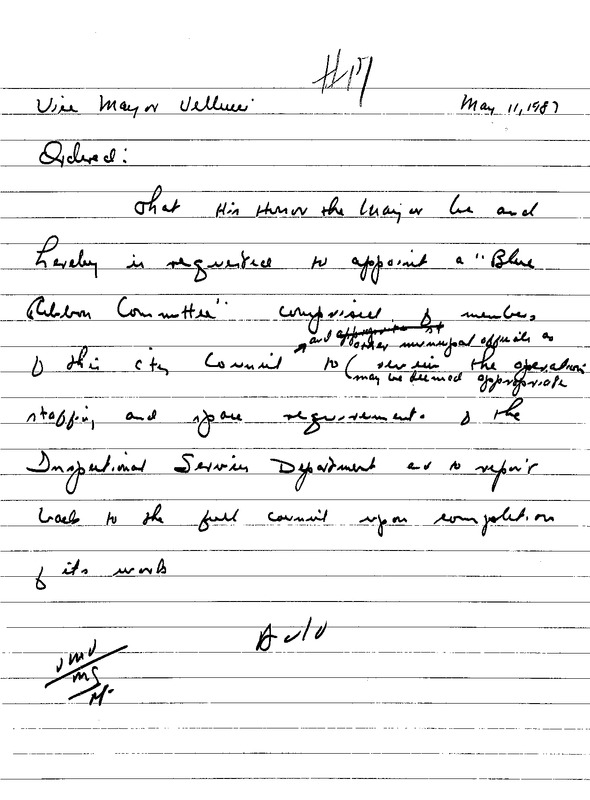 #17
Vice Mayor Vellucci May 11, 1987
Ordered:
That His Honor the Mayor be and
hereby is requested to appoint a "Blue
Ribbon Committee" comprised of members
and appropriate other municipal officials as
of this city Council to (review the operation
may be deemed appropriate
staffing and space requirements of the
Inspectional Services Department and to report
back to the full council upon completion
of its work
VMV
MS